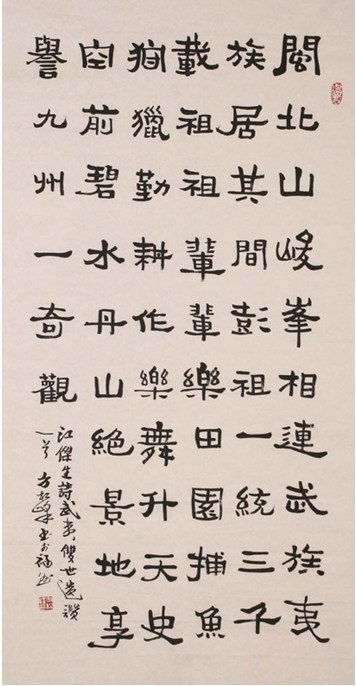 閩北山峻峯相連武族夷
族居其間彭祖一統三子
載祖祖輩輩樂田園捕魚
獵勤耕作樂舞升天史
空前碧水丹山絕景地享
譽九州一奇觀
江傑生詩武夷雙世遺讚
一首 方峰書於福州